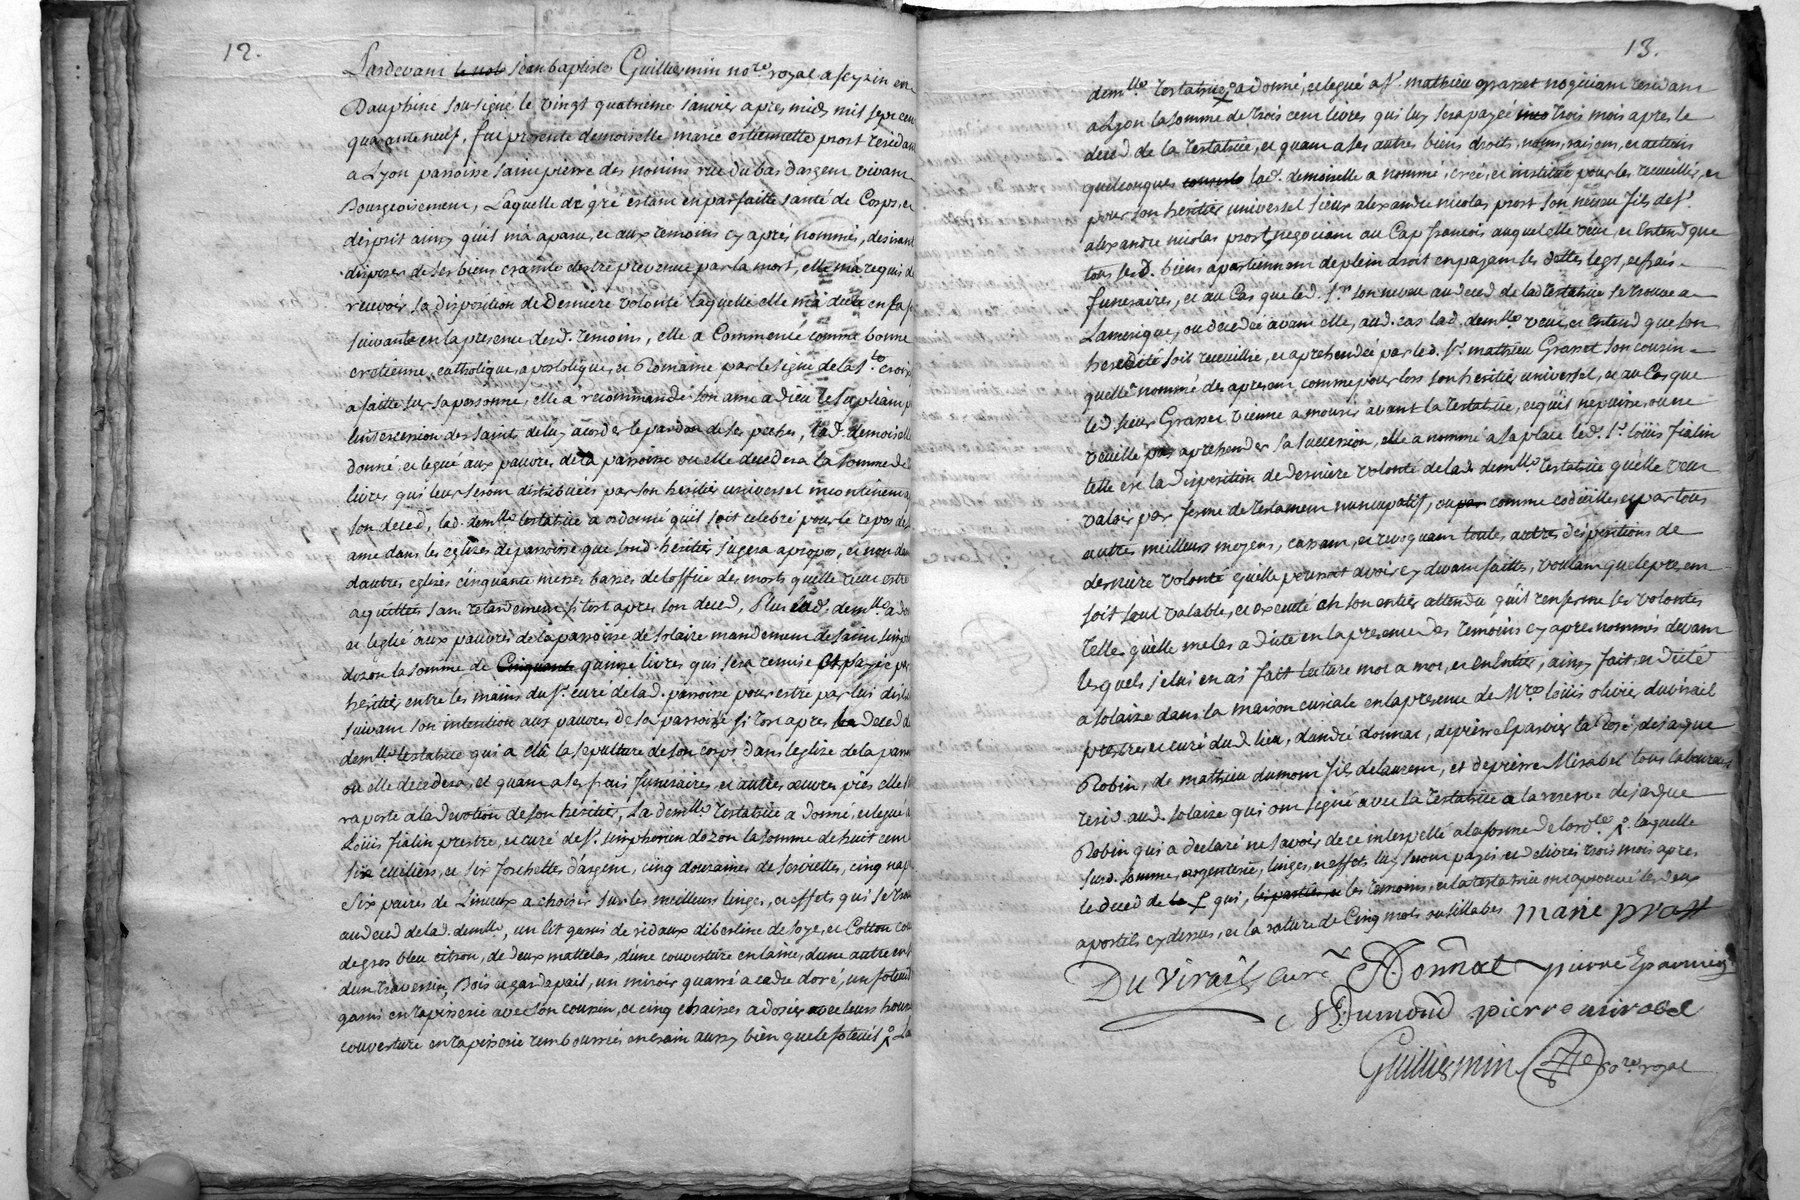 12.
Pardevant le not Jean baptiste Guilliermin no.re royal a feyzin en
Dauphiné sou-signé le vingt quatrieme janvier apres midy mil sept cent
quarante neuf, fut presente demoiselle marie estiennette prost residant
a Lyon parroisse saint pierre des nonins rue du bas dargent vivant
Bourgeoisement, Laquelle de gré estant en parfaitte santé de Corps, et
desprit ainsy quil m'a aparu, et aux temoins cy après nommés, desirant
disposer de ses biens crainte destre prevenue par la mort, elle m'a requis de
recevoir sa disposition de Derniere volonté laquelle elle m'a dicté en la
suivante en la presence desd. temoins, elle a Commencé comme bonne
cretienne, catholique, apostolique, et Romaine par le signe de la S.te croix
a faitte sur sa personne, elle a recommandé son ame a dieu le supliant
lintercession des saints de luy acorder le pardon de ses peches, lad. demoiselle
donné et legué aux pauvres de la parroisse ou elle decedera la somme de
livres qui leur seront distribuées par son heritier universel incontinent
son deced, lad. dem.lle testatrice a ordonné qu'il soit celebré pour le repos de
ame dans les eglizes de parroisse que sond. heritier jugera apropos, et non dans
dautres eglizes cinquante messes basses de loffice des morts quelle veut estre
aquittées sans retardement si tost apres son deced, Plus lad. dem.lle a donné
et legué aux pauvres de la parroisse de solaire mandement de saint simphorien
dozon la somme de Cinquante quinze livres qui sera remise et payée par
heritier entre les mains du S.r curé de lad. parroisse pour estre par lui
suivant son intention aux pauvres de sa parroisse si tost apres le deced de
dem.lle testatrice qui a élu la sepulture de son corps dans leglize de la parroisse
ou elle decedera, et quant a ses frais funeraires, et autres œuvres pies elle
raporte a la devotion de son heritier, La dem.lle testatrice a donné, et legué a
Loüis fialin prestre, et curé de S.t simphorien dozon la somme de huit cent
six cueilliers, et six forchettes d'argent, cinq douzaines de serviettes, cinq nap
six paires de Linceux a choisir sur les meilleurs linges, et effets qui se trou
au deced de lad. dem.lle, un lit garni de ridaux dibertine de soye, et Cotton
de gros bleu citron, de deux mattelas, d'une couverture en laine, d'une autre en
d'un traversin, Bois et gardepait, un miroir quarré a cadre doré, un foteuil
garni en tapisserie avec son coussin, et cinq chaises a dosier avec leurs hous
couverture en tapisserie rembourrées en crain aussy bien que le foteuil La
13.
dem.lle testatrice a donné, et legué a S.r mathieu grasset nogotiant residant
a Lyon la somme de trois cent livres qui luy sera payée trois mois apres le
deced de la testatrice, et quant a ses autres biens droits, noms, raisons, et actions
quelconques lad. demoiselle a nommé, créé, et institué pour les recueillir, et
pour son heritier universel sieur alexandre nicolas prost son neveu fils de S.r
alexandre nicolas prost negociant au Cap francois auquel elle veut, et Entend que
tous sesd. biens apartiennent de plein droit en payant les dettes legs, et frais
funeraires, et au Cas que led. S.r son neveu au deced de lad testatrice se trouve a
Lamerique, ou decedée avant elle, aud. cas lad. dem.lle veut, et Entend que son
heredité soit recueillie, et aprehendée par led. S.r mathieu Grasset son cousin
quelle nommé des apresent comme pour lors son heritier universel, et au Cas que
led sieur Grasset vienne a mourir avant la testatrice, et qu'il ne puisse, ou ne
veuille pas aprehender sa succession, elle a nommé a sa place led. S.r loüis fialin
telle est la disposition de derniere volonté de lad. dem.lle testatrice qu'elle veut
valoir par forme de testament nuncupatif, ou par comme codicille, et par tous
autres meilleurs moyens, cassant, et revoquant toutes autres dispositions de
derniere volonté qu'elle pourroit avoir cy devant faittes, voulant que le present
soit seul valable, et executé en son entier attendu qu'il renferme ses volontés
telles qu'elle me les a dicté en la presence des temoins cy apres nommés devant
lesquels je lui en ai fait lecture mot a mot, et en Entier, ainsy fait, et dicté
a solaize dans la maison curiale en la presence de M.re loüis olivier duvirail
prestre et curé dud lieu, d'andré donnat, de pierre Eparvier la Rosé, de jacque
Robin, de mathieu dumont fils de laurent, et de pierre Mirabel tous laboureurs
resid. aud. solaize qui ont signé avec la testatrice a la reserve de jacque
Robin qui a declaré ne savoir de ce interpellé a la forme de lord.ce laquelle
susd. somme, argenterie, linges, et effets luy seront payés, et delivrés trois mois apres
le deced de la qui, les parties et les temoins, et la testatrice ont aprouvé les deux
apostils cy dessus, et la rature de Cinq mots ou sillabes marie prost
Du Virail curé A Donnat pierre Eparvier
M Dumond pierre mirabel
Guilliermin no.re royal